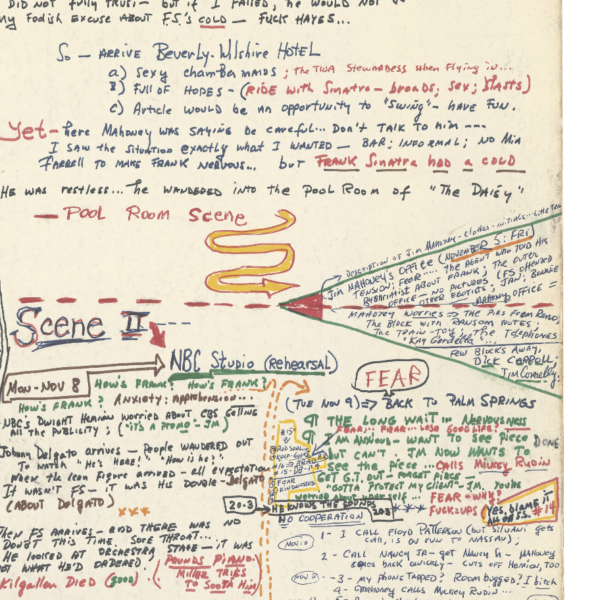 DID NOT fully TRUST — but if I FAILED, he WOULD NOT
my Fodish EXCUSE ABOUT F.S.'s COLD — FUCK HAYES...
So — ARRIVE Beverly-WIlshire HOTEL
a) Sexy chambermaids; the TWA Stewardess when flying in...
B) FULL OF HOPES — (RIDE WITH Sinatra — broads; sex; BLASTS)
C) Article WOULD BE an OPPORTUNITY TO "SWING" — HAVE FUN.
Yet — here MAHONEY WAS SAYING BE CAREFUL... DON'T TALK TO him ---
I SAW the Situation EXACTLY what I WANTED — BAR; INFORMAL; NO MIA
FARRELL TO MAKE FRANK NERVOUS... but FRANK Sinatra HAD A COLD
HE WAS RESTLESS... he WANDERED INTO the POOL ROOM of "The DAISY"
— POOL ROOM Scene
DESCRIPTION OF Jim MAHONEY - CLOTHES - INITIALS -
JIM MAHONEY'S OFFICE (NOVEMBER 5: FRI)
TENSION; FEAR.... THE AGENT WHO TOLD HIS
ABOUT FRANK; THE OUTER
OFFICE — NO PICTURES (FS OFFENDED
OTHER EGOTISTS; JAN; BONNIE
MAHONEY OFFICE =
MAHONEY WORRIES => THE PIAS FROM RENO,
The BLOCK WITH RANSOM NOTES;
The TRAIN-TOY; The TELEPHONES
"Kay Gardella ...
FEW BLOCKS AWAY,
DICK CARROLL;
Jim Connelly.
Scene II
NBC Studio (Rehearsal)
MON-NOV 8
HOW'S FRANK? HOW'S FRANK?
HOW'S FRANK? ANXIETY: APPREHENSION...
NBC'S DWIGHT HEMION WORRIED ABOUT CBS GETTING
ALL THE PUBLICITY; ("it's A PROMO — JM)
Johnny Delgato arrives — PEOPLE WANDERED OUT
TO WATCH "HE'S HERE!" "How is he?"
When the ICON FIGURE ARRIVED — All expectation
IT WASN'T FS — IT WAS HIS DOUBLE — DELGATO
(ABOUT DELGATO)
XXX
Then FS ARRIVED — AND THERE WAS NO
DOUBT THIS TIME. SORE THROAT...
HE LOOKED AT ORCHESTRA STAGE — IT WAS
NOT WHAT HE'D ORDERED.
(POUNDS PIANO.
MILLER TRIES
TO SOOTH HIM)
Kilgallen DIED (good)
FEAR
(TUE NOV 9) => BACK TO PALM SPRINGS
¶ THE LONG WAIT IN NERVOUSNESS
FEAR... FEAR... LOSE GOOD LIFE?
¶ I AM ANXIOUS — WANT TO SEE PIECE DONE
BUT CAN'T. JM NOW WANTS TO
SEE the PIECE... CALLS MICKEY RUDIN
GET G.T. OUT — FORGET PIECE —
"GOTTA PROTECT MY CLIENT" — JM. You're
WORRIED ABOUT YOURSELF... FEAR — WHY?
20-3 -> HE KNOWS THE SOUNDS 203 XXX FUCK-UPS (YES, BLAME IT ALL ON F.S. #14
NO COOPERATION
NOV 10
1 — I CALL FLOYD PATTERSON (but SILVANI gets
CAR, IS ON FLW TO NASSAU).
2 — CALL NANCY JR — got NANCY Sr — MAHONEY
COMES BACK QUICKLY — CUTS OFF HEMION, TOO
NOV 11
— 3 — MY PHONE TAPPED? ROOM BUGGED? I bitch
a — MAHONEY CALLS MICKEY RUDIN...